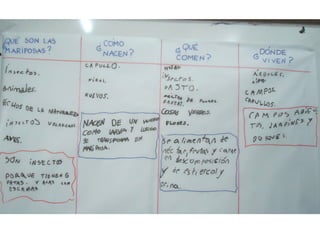 ¿QUÉ SON LAS
MARIPOSAS?
insectos.
animales.
BICHOS DE LA NATURALEZA
insectos VOLADORES.
AVES.
SON INSECTOS
PORQUE TIENEN 6
PATAS. Y ALAS CON
ESCAMAS
¿CÓMO
NACEN?
CAPULLO.
NIDAL
HUEVOS.
NACEN DE UN HUEVO
COMO LARVA Y LUEGO
SE TRANSFORMA EN
MARIPOSA.
¿QUÉ
COMEN?
INSECTOS.
PASTO.
NECTAR DE FLORES
FRUTAS.
COSAS VERDES.
FLORES.
Se alimentan de
néctar, frutas y carne
en descomposición
y de estiércol y
orina.
¿DÓNDE
VIVEN?
ÁRBOLES.
CAMPOS
CAPULLOS.
CAMPOS ABIER-
TOS, JARDINES Y
BOSQUES.